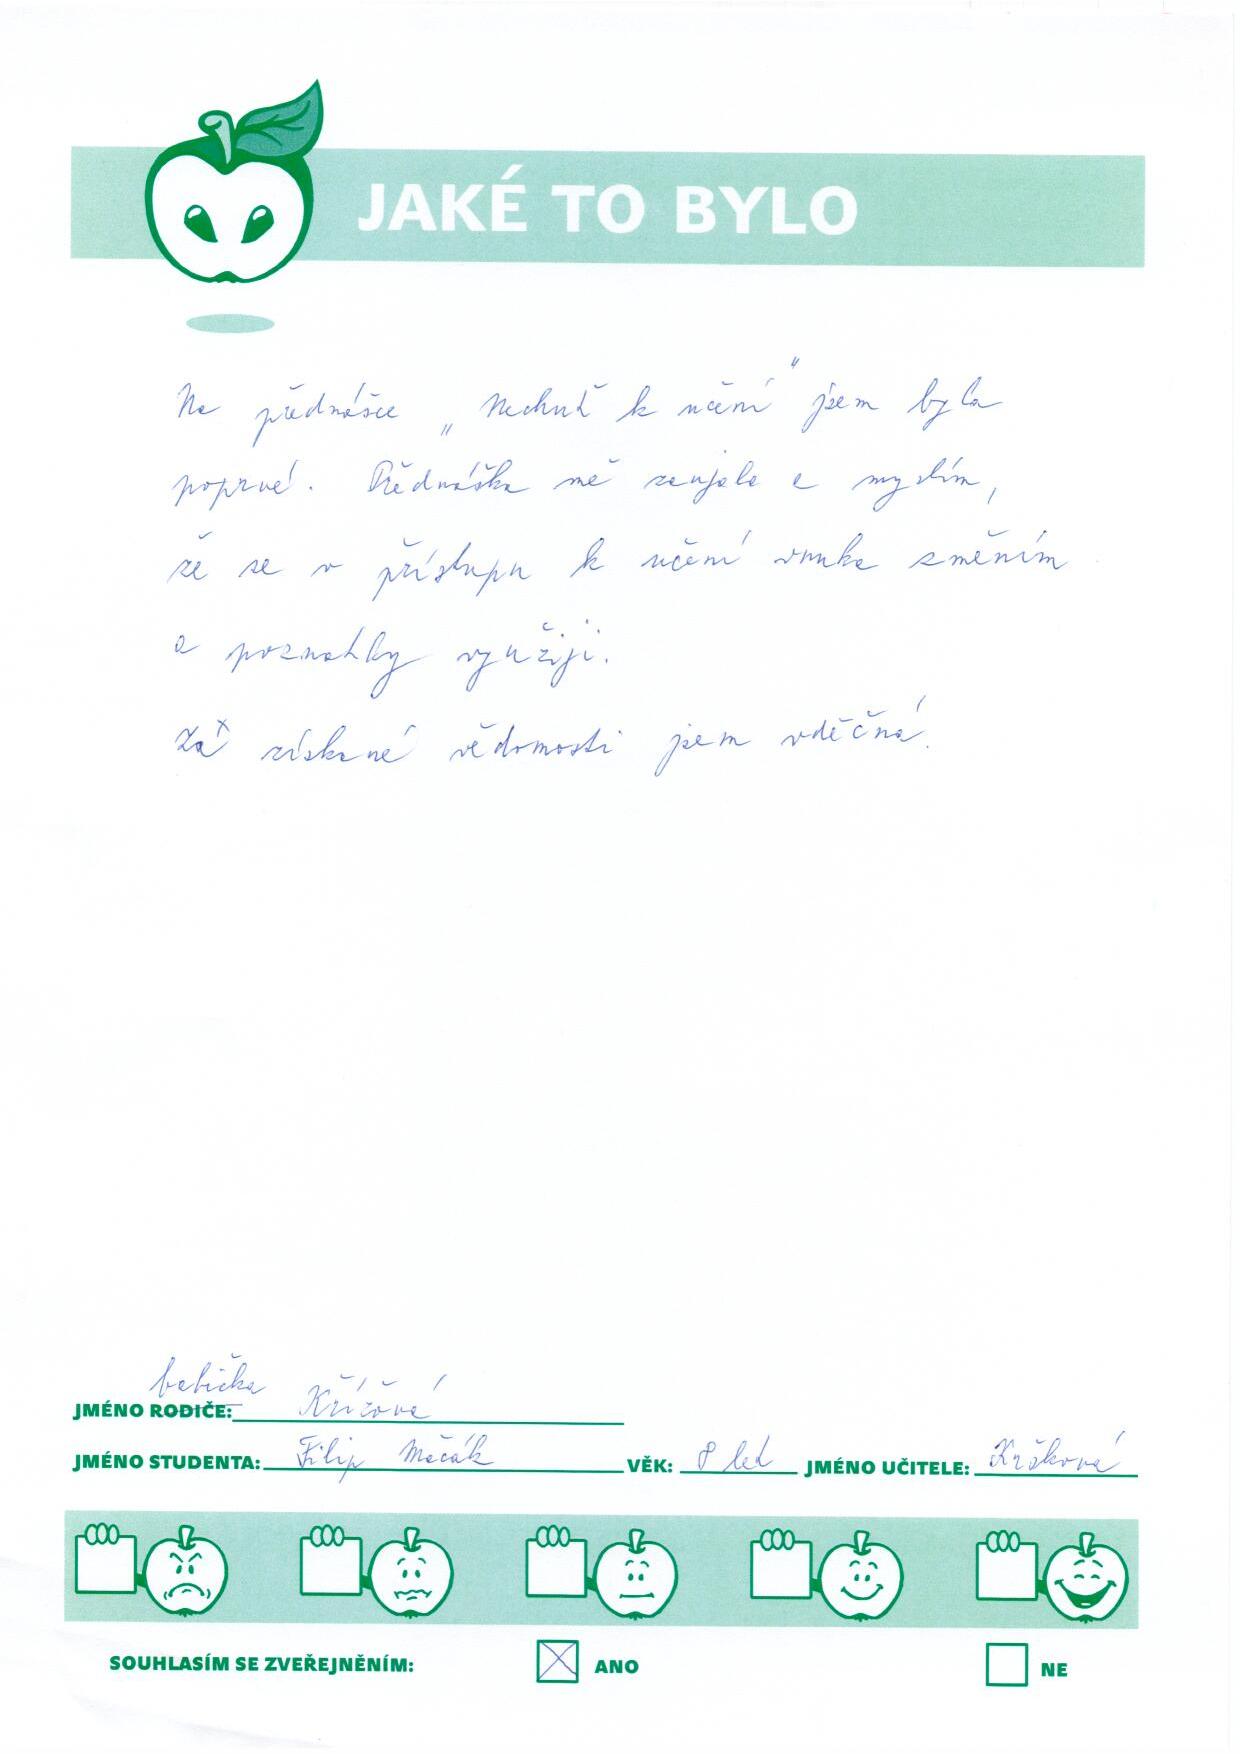 JAKÉ TO BYLO
Na přednášce „Nechuť k učení" jsem byla
poprvé. Přednáška mě zaujala a myslím,
že se v přístupu k učení vnuka změním
a poznatky využiji.
Za získané vědomosti jsem vděčná.
babička
JMÉNO RODIČE: Křížová
JMÉNO STUDENTA: Filip Mačák VĚK: 8 let JMÉNO UČITELE: Kršková
SOUHLASÍM SE ZVEŘEJNĚNÍM: ANO NE